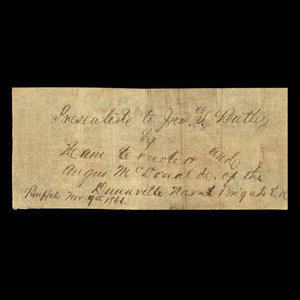 Presented to Jno. T. Butler
by
and
Angus McDonald. of the
Dunnville Naval Brigade C.W
Buffalo Nov 9th 1866